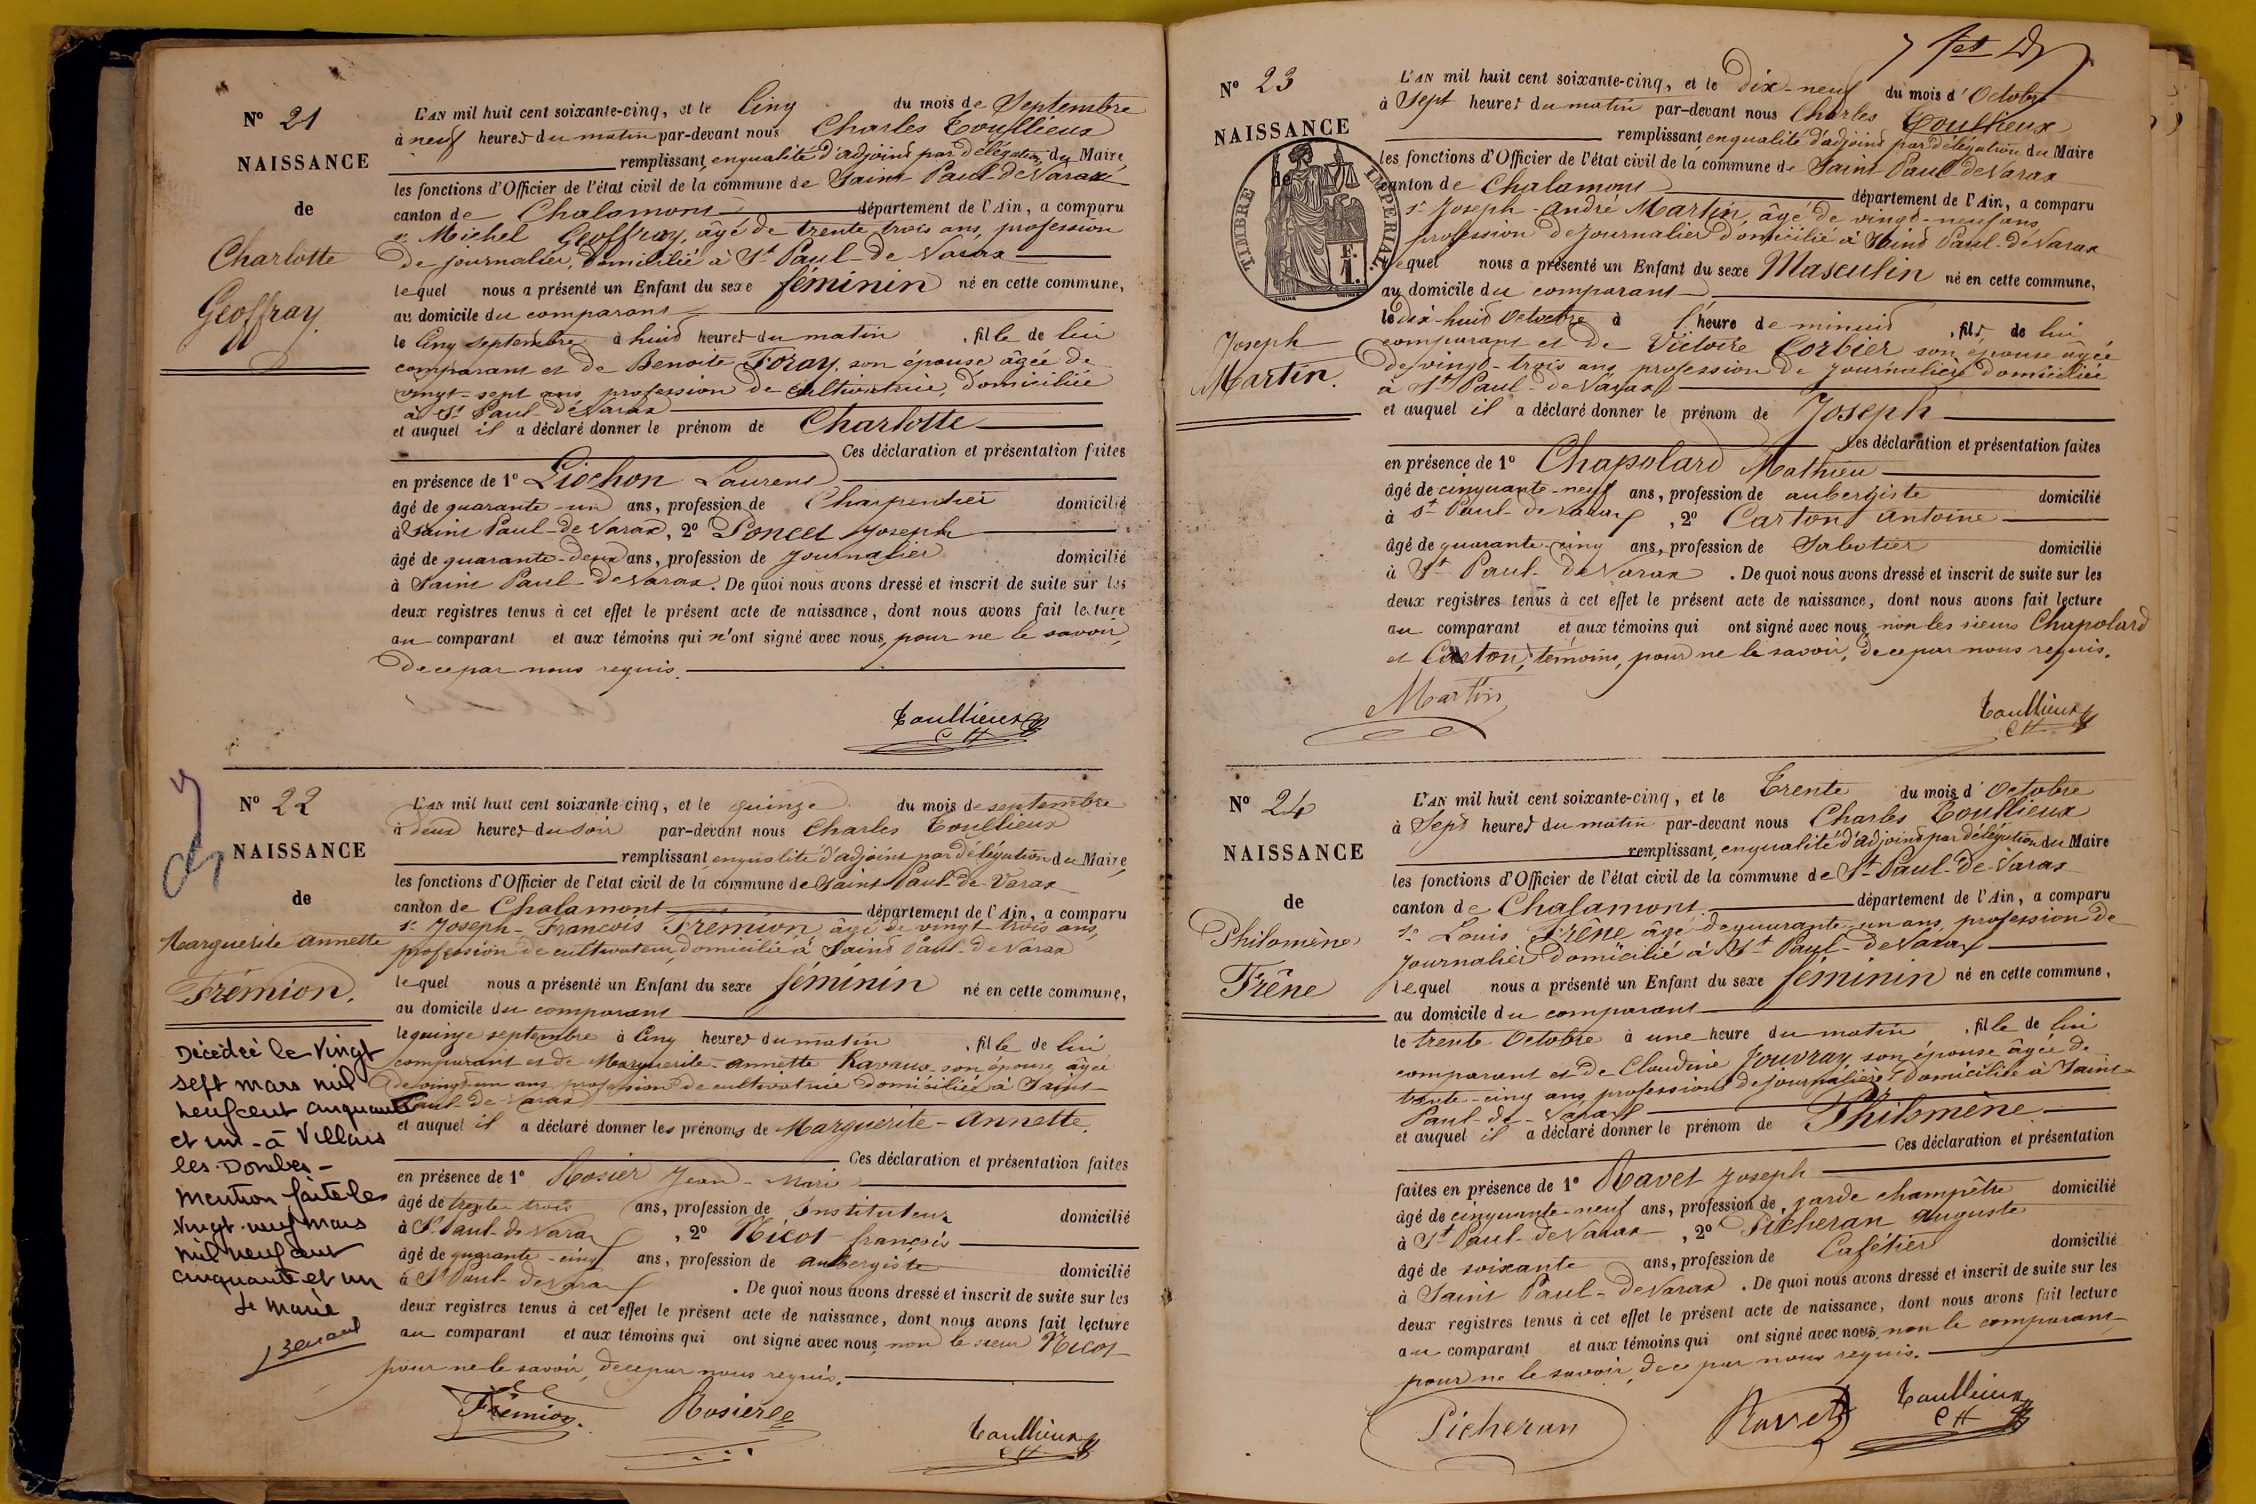 N° 21
NAISSANCE
de
Charlotte
Geoffray
L'AN mil huit cent soixante-cinq, et le Cinq du mois de Septembre
à neuf heures du matin par-devant nous Charles Toullieux
remplissant, en qualité d'adjoint par délégation du Maire,
les fonctions d'Officier de l'état civil de la commune de Saint Paul-de Varax
canton de Chalamont département de l'Ain, a comparu
sr Michel Geoffray, âgé de trente trois ans, profession
de journalier, domicilié à St Paul-de Varax
lequel nous a présenté un Enfant du sexe féminin né en cette commune,
au domicile du comparant
le Cinq septembre à huit heures du matin, fille de lui
comparant et de Benoite Foray, son épouse, âgée de
vingt-sept ans, profession de cultivatrice, domiciliée
à St Paul-de Varax
et auquel il a déclaré donner le prénom de Charlotte
Ces déclaration et présentation faites
en présence de 1° Liochon Laurent
âgé de quarante-un ans, profession de Charpentier domicilié
à Saint Paul-de Varax, 2° Poncet Joseph
âgé de quarante-deux ans, profession de journalier domicilié
à Saint Paul de Varax. De quoi nous avons dressé et inscrit de suite sur les
deux registres tenus à cet effet le présent acte de naissance, dont nous avons fait lecture
au comparant et aux témoins qui n'ont signé avec nous, pour ne le savoir,
de ce par nous requis.
Toullieux
N° 22
NAISSANCE
de
Marguerite annette
Frémion.
Décédée le vingt
sept mars mil
neuf cent cinquante
et un - à Villars
les Dombes -
Mention faite le
vingt neuf mars
mil neuf cent
cinquante et un
Le Maire
L'AN mil huit cent soixante cinq, et le quinze du mois de septembre
à deux heures du soir par-devant nous Charles Toullieux
remplissant, en qualité d'adjoint par délégation du Maire,
les fonctions d'Officier de l'état civil de la commune de Saint Paul-de-Varax
canton de Chalamont département de l'Ain, a comparu
sr Joseph-François Frémion, âgé de vingt-trois ans,
profession de cultivateur, domicilié à Saint Paul-de Varax
lequel nous a présenté un Enfant du sexe féminin né en cette commune,
au domicile du comparant
le quinze septembre à Cinq heures du matin, fille de lui
comparant et de Marguerite-annette Ravaus son épouse, âgée
de vingt-un ans, profession de cultivatrice domiciliée à Saint
Paul-de-Varax
et auquel il a déclaré donner les prénoms de Marguerite-Annette.
Ces déclaration et présentation faites
en présence de 1° Rosier Jean-Marie
âgé de trente trois ans, profession de Instituteur domicilié
à St Paul-de Varax, 2° Nicot françois
âgé de quarante-cinq ans, profession de aubergiste domicilié
à St Paul-de Varax. De quoi nous avons dressé et inscrit de suite sur les
deux registres tenus à cet effet le présent acte de naissance, dont nous avons fait lecture
au comparant et aux témoins qui ont signé avec nous, non le sieur Nicot
pour ne le savoir, de ce par nous requis.
Frémion. Rosier
Toullieux
N° 23
NAISSANCE
de
TIMBRE IMPERIAL
Joseph
Martin.
L'AN mil huit cent soixante-cinq, et le Dix-neuf du mois d'Octobre
à Sept heures du matin par-devant nous Charles Toullieux
remplissant, en qualité d'adjoint par délégation du Maire
les fonctions d'Officier de l'état civil de la commune de Saint Paul de Varax
canton de Chalamont département de l'Ain, a comparu
sr Joseph-André Martin, âgé de vingt-neuf ans,
profession de journalier domicilié à Saint Paul-de Varax
lequel nous a présenté un Enfant du sexe Masculin né en cette commune,
au domicile du comparant
le dix-huit Octobre à l'heure de minuit, fils de lui
comparant et de Victoire Corbier son épouse âgée
de vingt-trois ans, profession de journalière domiciliée
à St Paul-de Varax
et auquel il a déclaré donner le prénom de Joseph
Ces déclaration et présentation faites
en présence de 1° Chapolard Mathieu
âgé de cinquante-neuf ans, profession de aubergiste domicilié
à St Paul-de Varax, 2° Carton antoine
âgé de quarante-cinq ans, profession de Sabotier domicilié
à St Paul-de Varax. De quoi nous avons dressé et inscrit de suite sur les
deux registres tenus à cet effet le présent acte de naissance, dont nous avons fait lecture
au comparant et aux témoins qui ont signé avec nous, non les sieurs Chapolard
et Carton, témoins, pour ne le savoir, de ce par nous requis.
Martin
Toullieux
N° 24
NAISSANCE
de
Philomène
Frêne
L'AN mil huit cent soixante-cinq, et le Trente du mois d'Octobre
à Sept heures du matin par-devant nous Charles Toullieux
remplissant, en qualité d'adjoint par délégation du Maire
les fonctions d'Officier de l'état civil de la commune de St Paul-de-Varax
canton de Chalamont département de l'Ain, a comparu
sr Louis Frêne âgé de quarante-un ans, profession de
journalier domicilié à St Paul-de Varax
lequel nous a présenté un Enfant du sexe féminin né en cette commune,
au domicile du comparant
le trente Octobre à une heure du matin, fille de lui
comparant et de Claudine Jouvray, son épouse âgée de
trente-cinq ans, profession de journalière, domiciliée à Saint
Paul-de-Varax
et auquel il a déclaré donner le prénom de Philomène
Ces déclaration et présentation
faites en présence de 1° Ravet Joseph
âgé de cinquante-neuf ans, profession de garde champêtre domicilié
à St Paul-de Varax, 2° Picheran auguste
âgé de soixante ans, profession de Cafétier domicilié
à Saint Paul-de Varax. De quoi nous avons dressé et inscrit de suite sur les
deux registres tenus à cet effet le présent acte de naissance, dont nous avons fait lecture
au comparant et aux témoins qui ont signé avec nous, non le comparant
pour ne le savoir, de ce par nous requis.
Picheran Ravet Toullieux